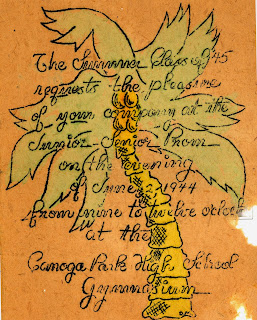 The Summer Class of '45
requests the pleasure
of your company at the
Junior-Senior Prom
on the evening
of June 2, 1944
from nine to twelve o'clock
at the
Canoga Park High School
Gymnasium